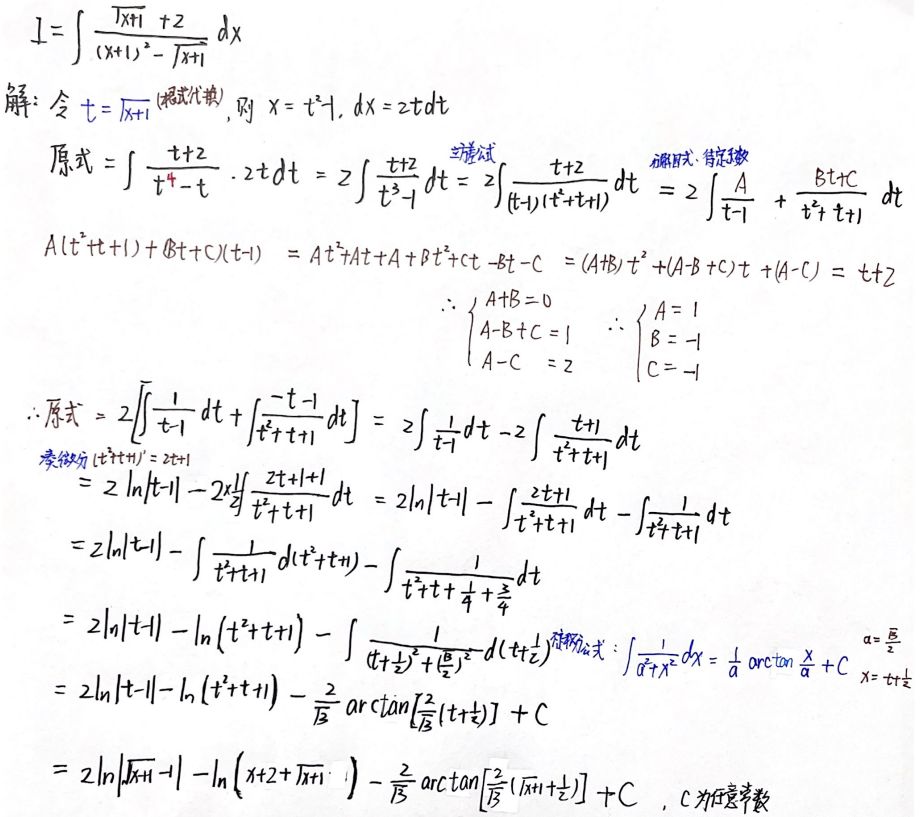 I = ∫ (√(x+1) + 2) / ((x+1)² − √(x+1)) dx
解: 令 t = √(x+1) (根式代换), 则 x = t²−1, dx = 2tdt
原式 = ∫ (t+2)/(t⁴−t) · 2t dt = 2∫ (t+2)/(t³−1) dt 立方差公式 = 2∫ (t+2)/((t−1)(t²+t+1)) dt 待定系数 = 2∫ A/(t−1) + (Bt+C)/(t²+t+1) dt
A(t²+t+1) + (Bt+C)(t−1) = At²+At+A+Bt²+Ct−Bt−C = (A+B)t² + (A−B+C)t + (A−C) = t+2
∴ { A+B=0 ∴ { A = 1
A−B+C = 1 B = −1
A−C = 2 C = −1
∴ 原式 = 2[∫ 1/(t−1) dt + ∫ (−t−1)/(t²+t+1) dt] = 2∫ 1/(t−1) dt − 2∫ (t+1)/(t²+t+1) dt
凑微分 (t²+t+1)' = 2t+1
= 2ln|t−1| − 2×½∫ (2t+1+1)/(t²+t+1) dt = 2ln|t−1| − ∫ (2t+1)/(t²+t+1) dt − ∫ 1/(t²+t+1) dt
= 2ln|t−1| − ∫ 1/(t²+t+1) d(t²+t+1) − ∫ 1/(t²+t+¼+¾) dt
= 2ln|t−1| − ln(t²+t+1) − ∫ 1/((t+½)²+(√3/2)²) d(t+½) 积分公式: ∫ 1/(a²+x²) dx = 1/a arctan x/a + C a = √3/2 x = t+½
= 2ln|t−1| − ln(t²+t+1) − 2/√3 arctan[2/√3 (t+½)] + C
= 2ln|√(x+1) −1| − ln(x+2+√(x+1)) − 2/√3 arctan[2/√3 (√(x+1)+½)] + C , C为任意常数